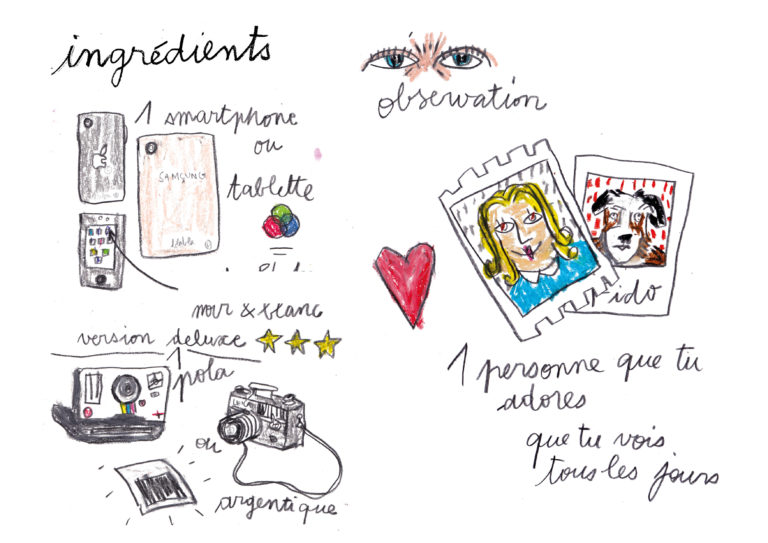 ingrédients
1 smartphone
ou
tablette
SAMSUNG
noir & blanc
version deluxe
1 pola
ou
argentique
observation
ido
1 personne que tu
adores
que tu vois
tous les jours